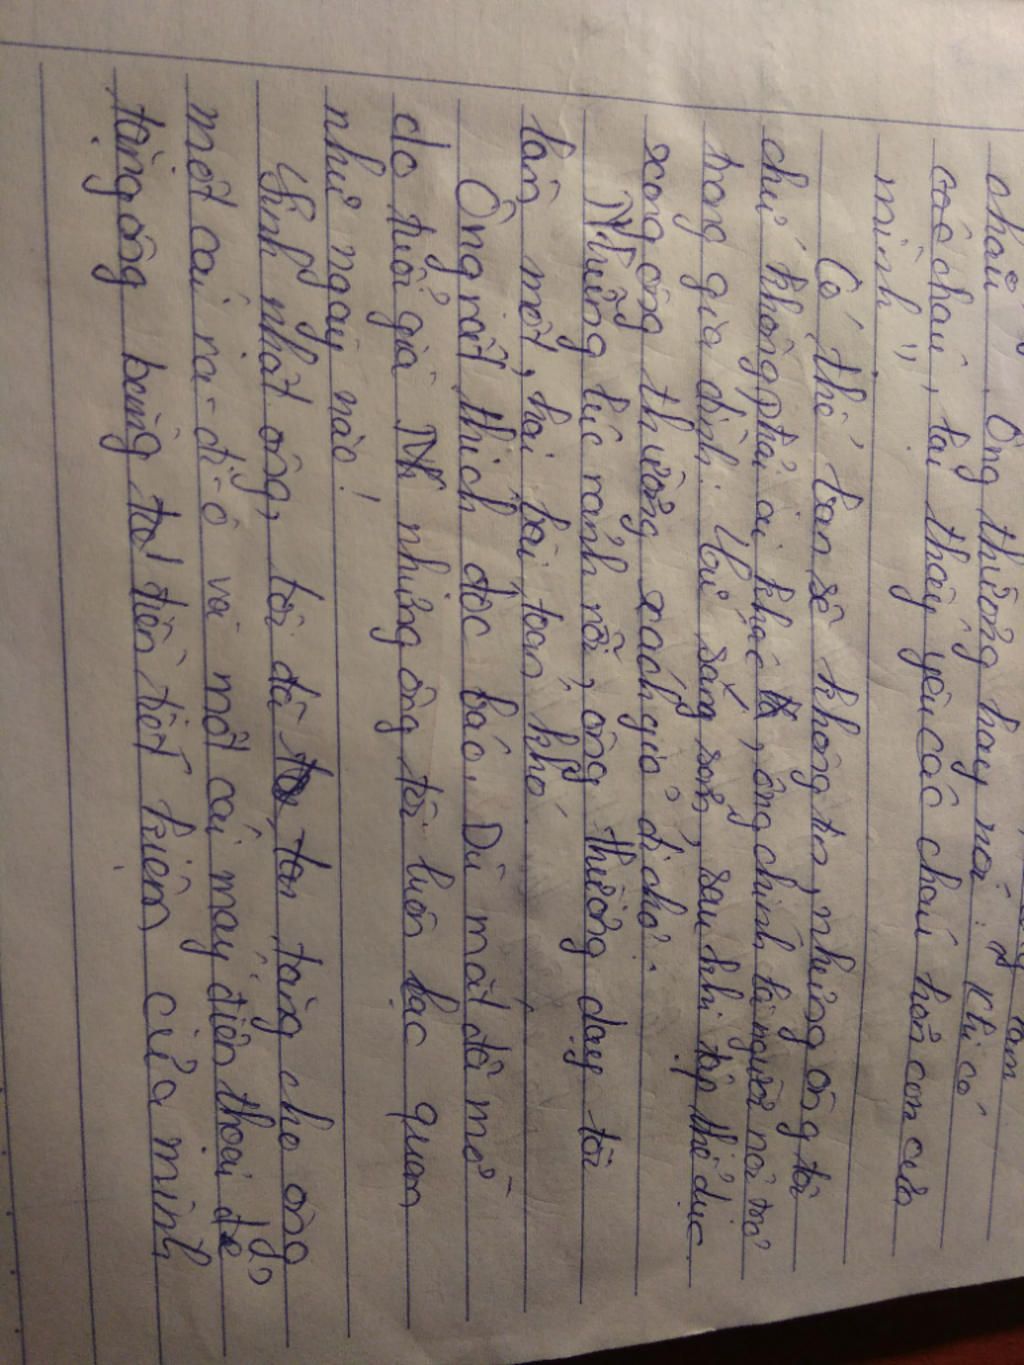 tâm
cháu. Ông thường hay nói: "Khi có
các cháu, lại thấy yêu các cháu hơn con của
mình".
Có thể bạn sẽ không tin, nhưng ông tôi
chứ không phải ai khác, ông chính là người nội trợ
trong gia đình. Mỗi sáng sớm, sau khi tập thể dục
xong ông thường xách giỏ đi chợ.
Những lúc rảnh rỗi, ông thường dạy tôi
làm một, hai bài toán khó.
Ông rất thích đọc báo. Dù mắt đã mờ
do tuổi già nhưng ông tôi luôn lạc quan
như ngày nào!
Sinh nhật ông, tôi đã tặng cho ông
một cái ra-đi-ô và một cái máy điện thoại để
tặng ông bằng tiền tiết kiệm của mình